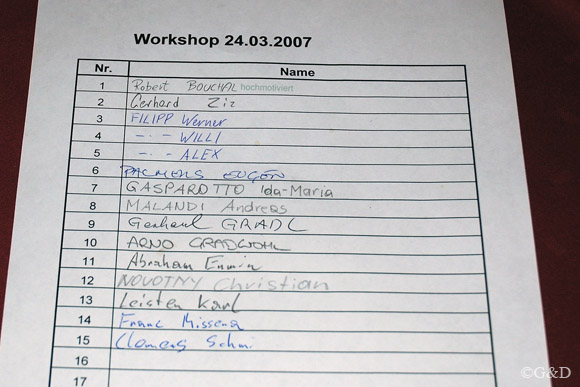 Workshop 24.03.2007
Nr. Name
1 Robert BOUCHAL hochmotiviert
2 Gerhard Ziz
3 FILIPP Werner
4 -·- WILLI
5 -·- ALEX
6 EUGEN
7 GASPAROTTO Ida-Maria
8 MALANDI Andreas
9 Gerhard GRADL
10 ARNO GRADWOHL
11 Abraham Erwin
12 NOVOTNY Christian
13 Leisten Karl
14 Franc Missena
15 Clemens
16
17
©G&D